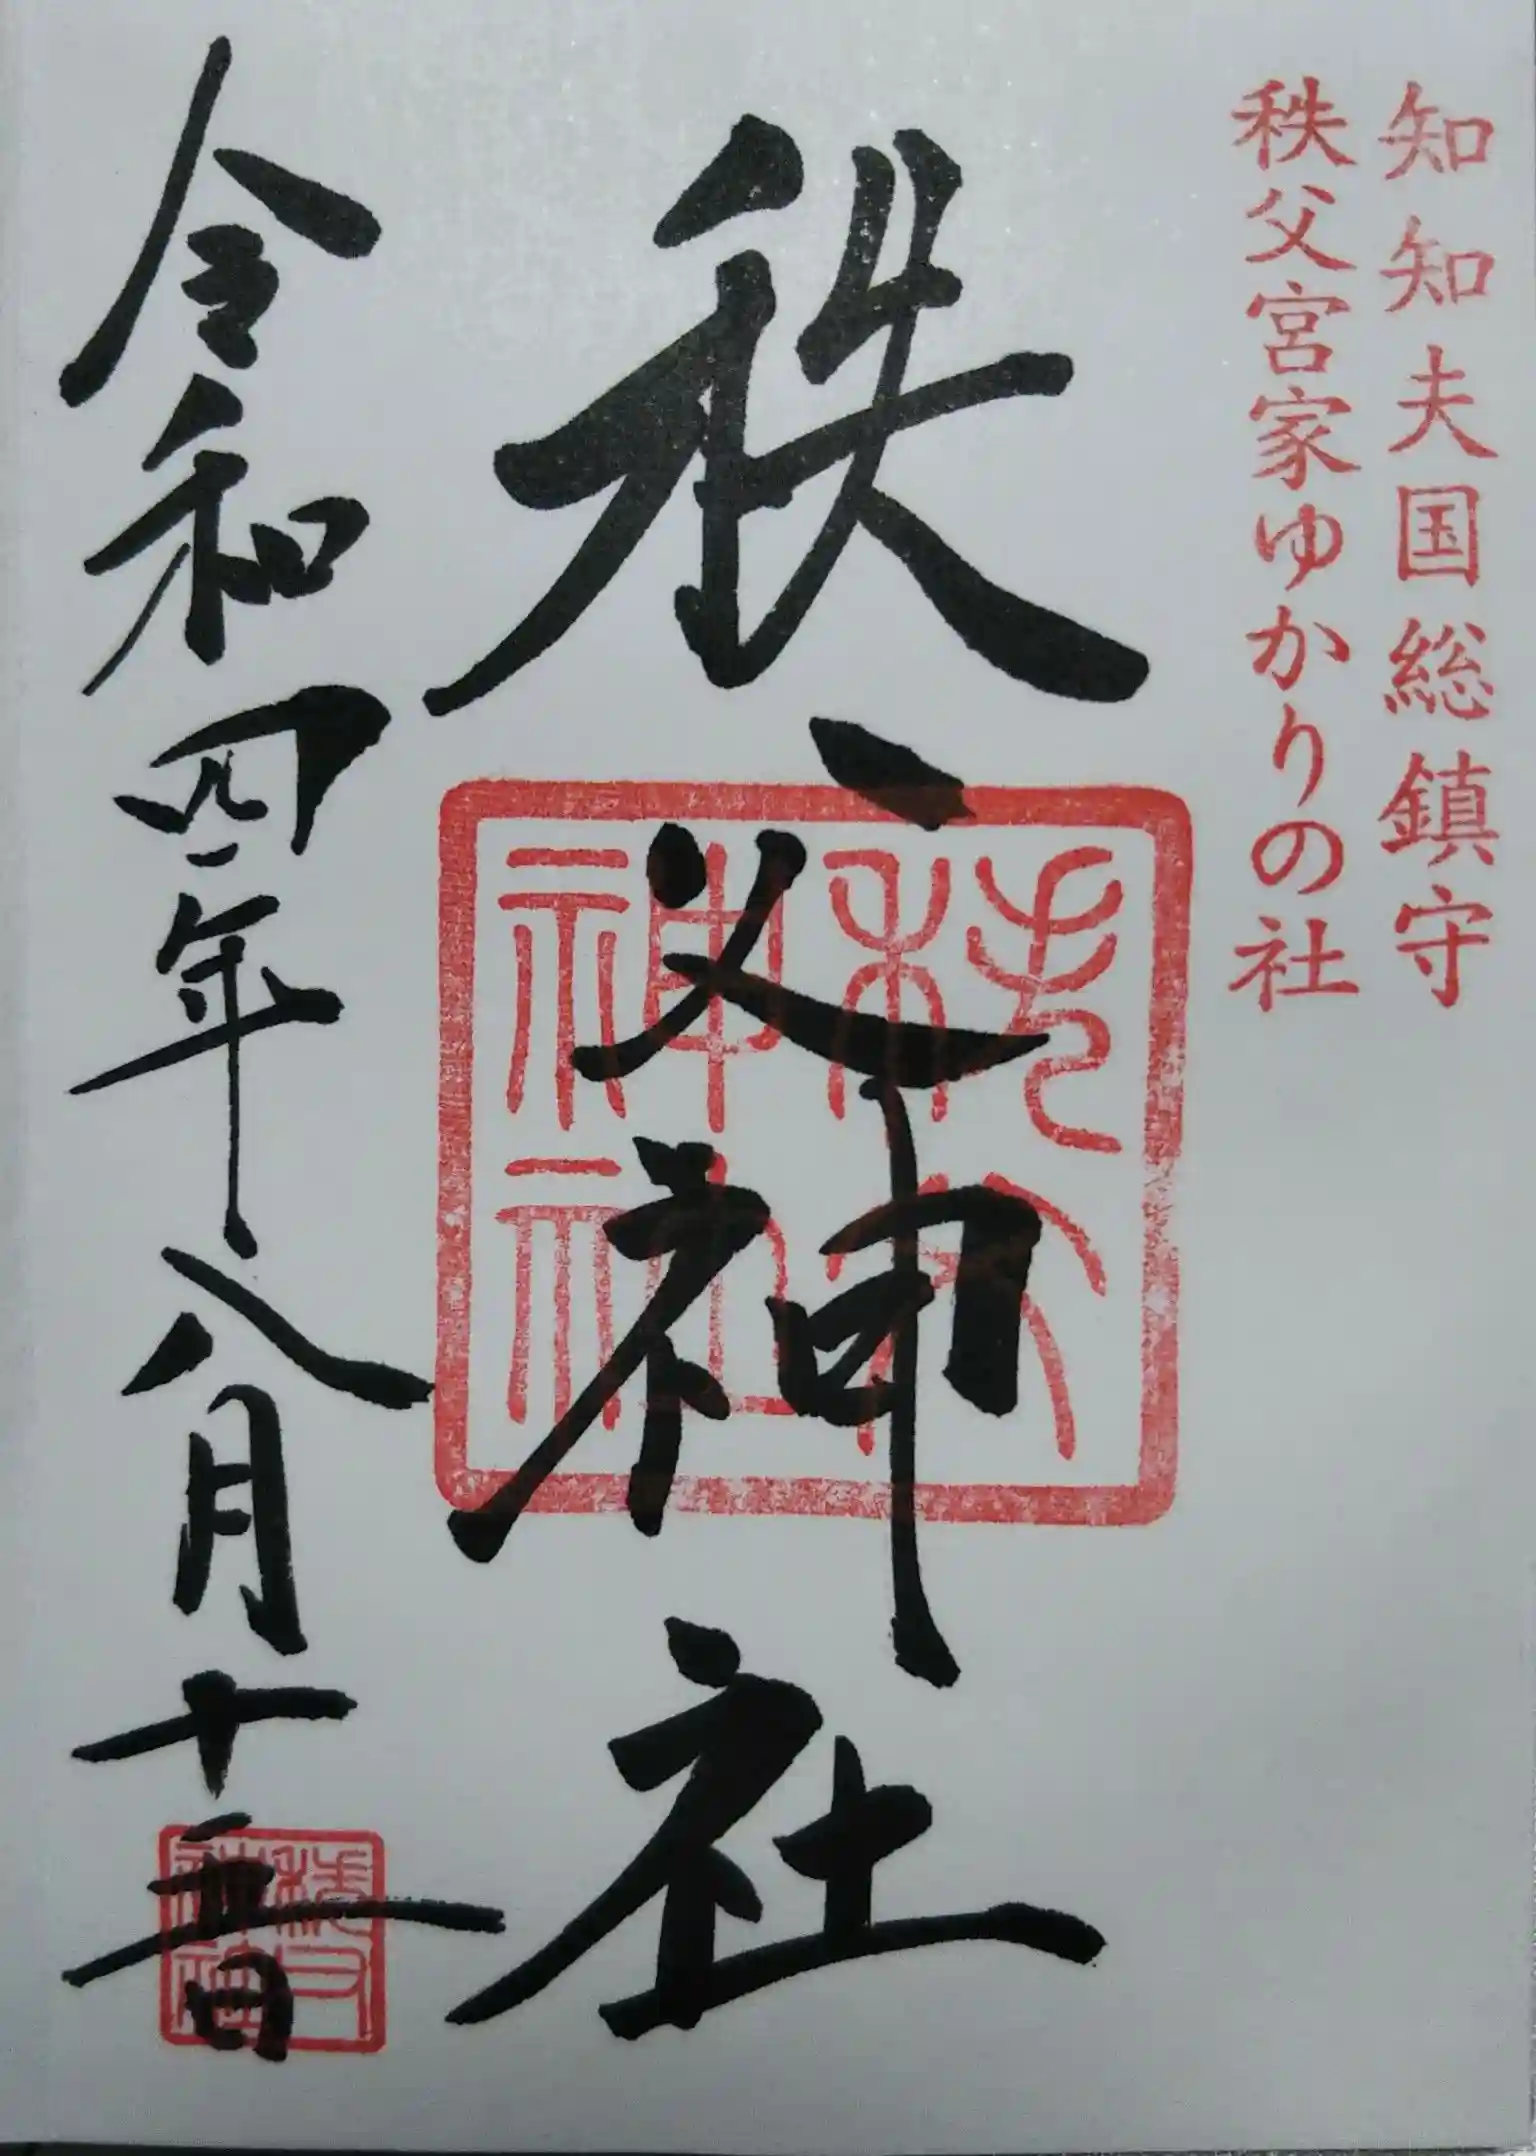 知知夫国総鎮守
秩父宮家ゆかりの社
秩父神社
秩父
神社
令和四年八月十五日